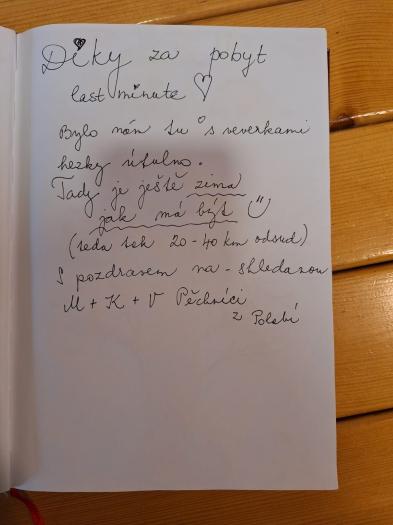 Díky za pobyt
last minute ♡
Bylo nám tu s veverkami
hezky útulno.
Tady je ještě zima
jak má být
(teda tak 20-40 km odsud)
S pozdravem na-shledanou
M + K + V Pěchníci
z Polski